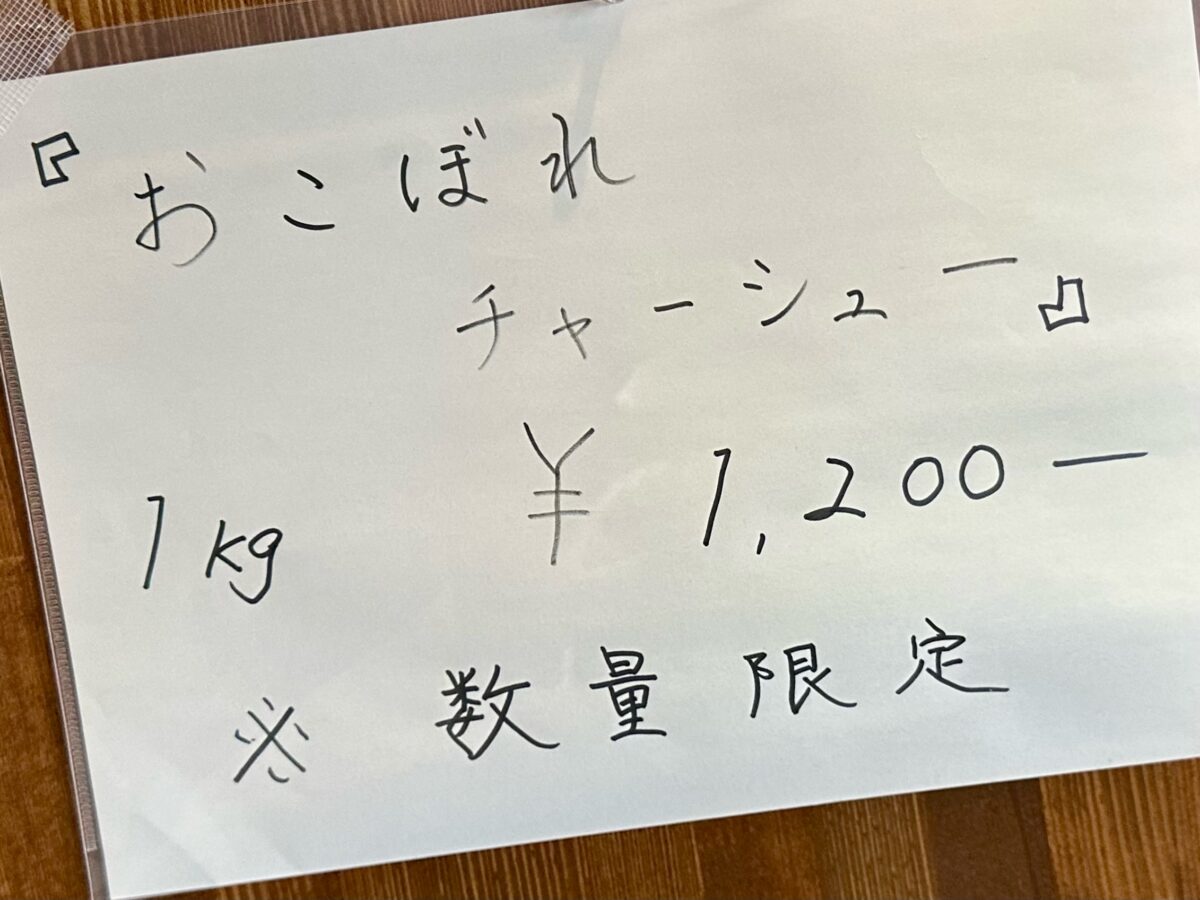 『おこぼれ
チャーシュー』
1kg ¥1,200ー
※ 数量限定